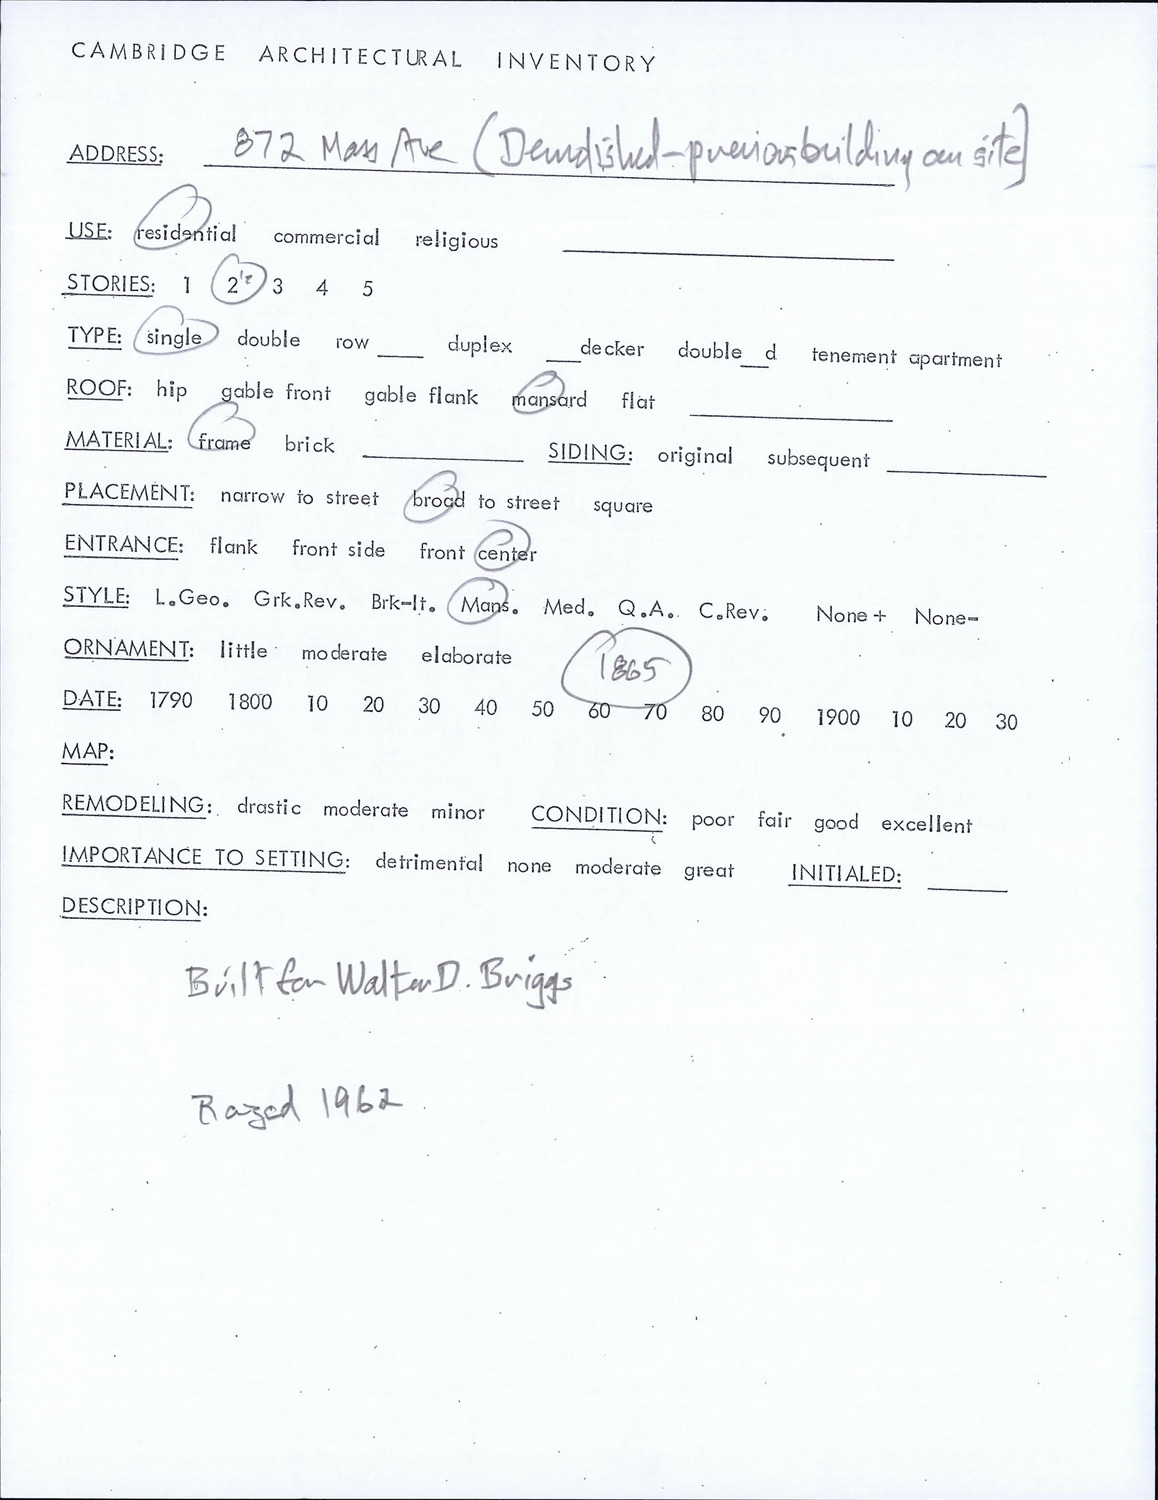 CAMBRIDGE ARCHITECTURAL INVENTORY
ADDRESS: 872 Mass Ave (Demolished-previous building on site)
USE: residential commercial religious
STORIES: 1 2 1/2 3 4 5
TYPE: single double row ___ duplex ___decker double__d tenement apartment
ROOF: hip gable front gable flank mansard flat
MATERIAL: frame brick ___ SIDING: original subsequent
PLACEMENT: narrow to street broad to street square
ENTRANCE: flank front side front center
STYLE: L.Geo. Grk.Rev. Brk-It. Mans. Med. Q.A. C.Rev. None+ None-
ORNAMENT: little moderate elaborate 1865
DATE: 1790 1800 10 20 30 40 50 60 70 80 90 1900 10 20 30
MAP:
REMODELING: drastic moderate minor CONDITION: poor fair good excellent
IMPORTANCE TO SETTING: detrimental none moderate great INITIALED:
DESCRIPTION:
Built for Walter D. Briggs
Razed 1962